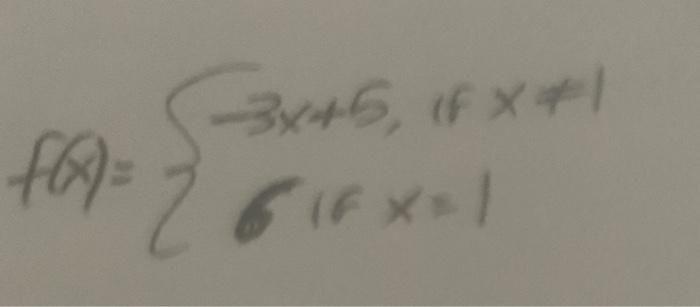 f(x)= { -3x+5, if x ≠ 1
6 if x = 1